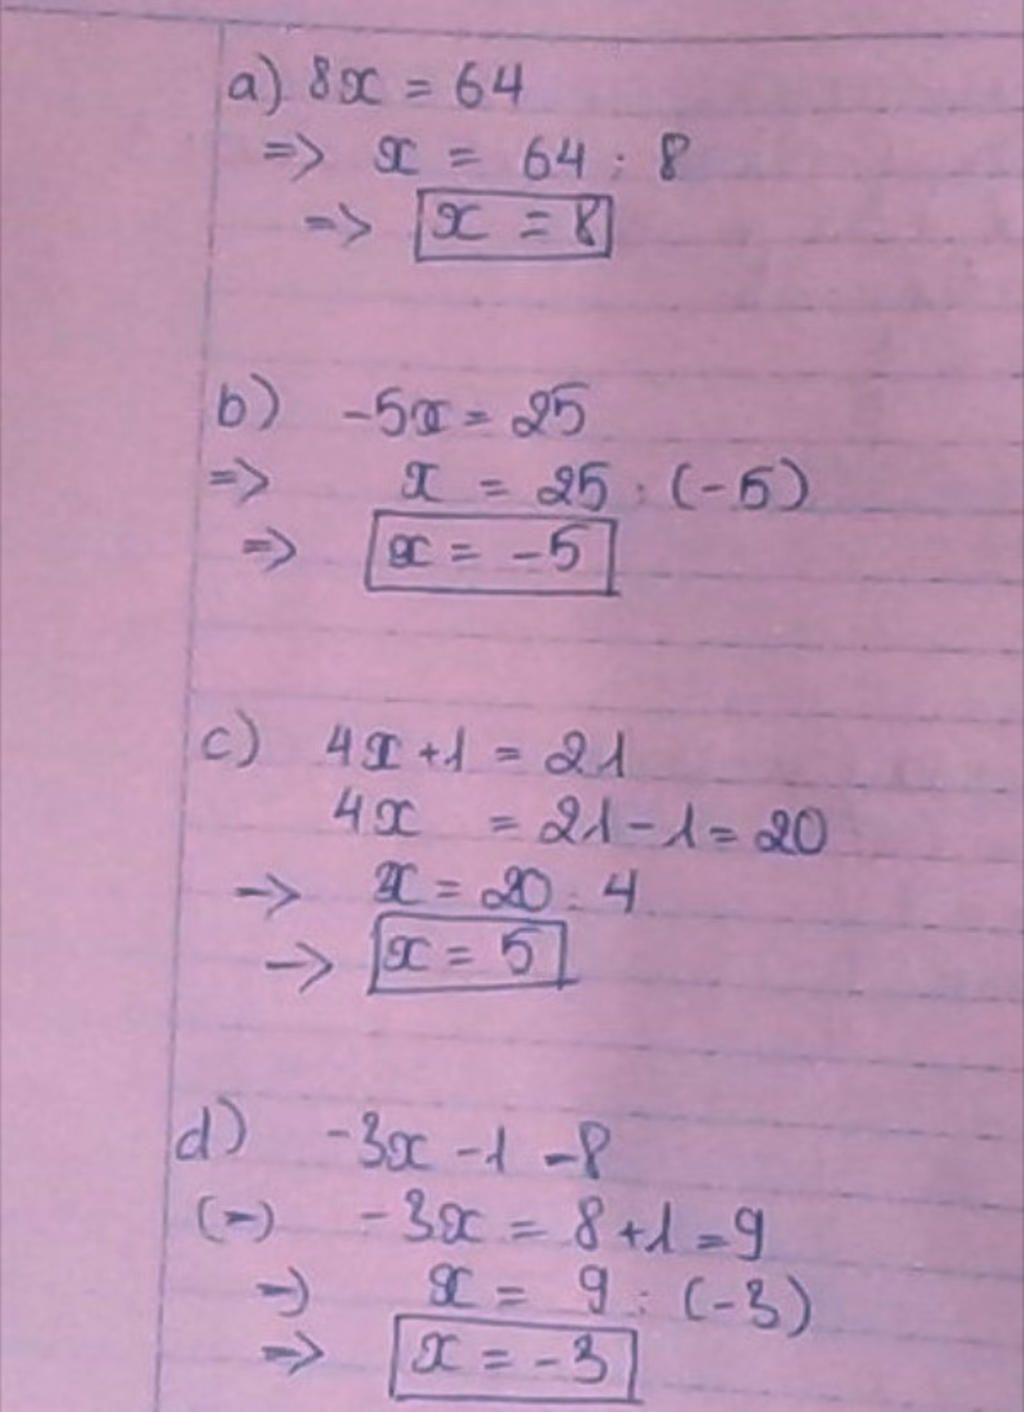 a) 8x = 64
=> x = 64 : 8
=> x = 8
b) -5x = 25
=> x = 25 : (-5)
=> x = -5
c) 4x + 1 = 21
4x = 21 - 1 = 20
-> x = 20 : 4
-> x = 5
d) -3x - 1 = 8
(=) -3x = 8 + 1 = 9
=) x = 9 : (-3)
=> x = -3